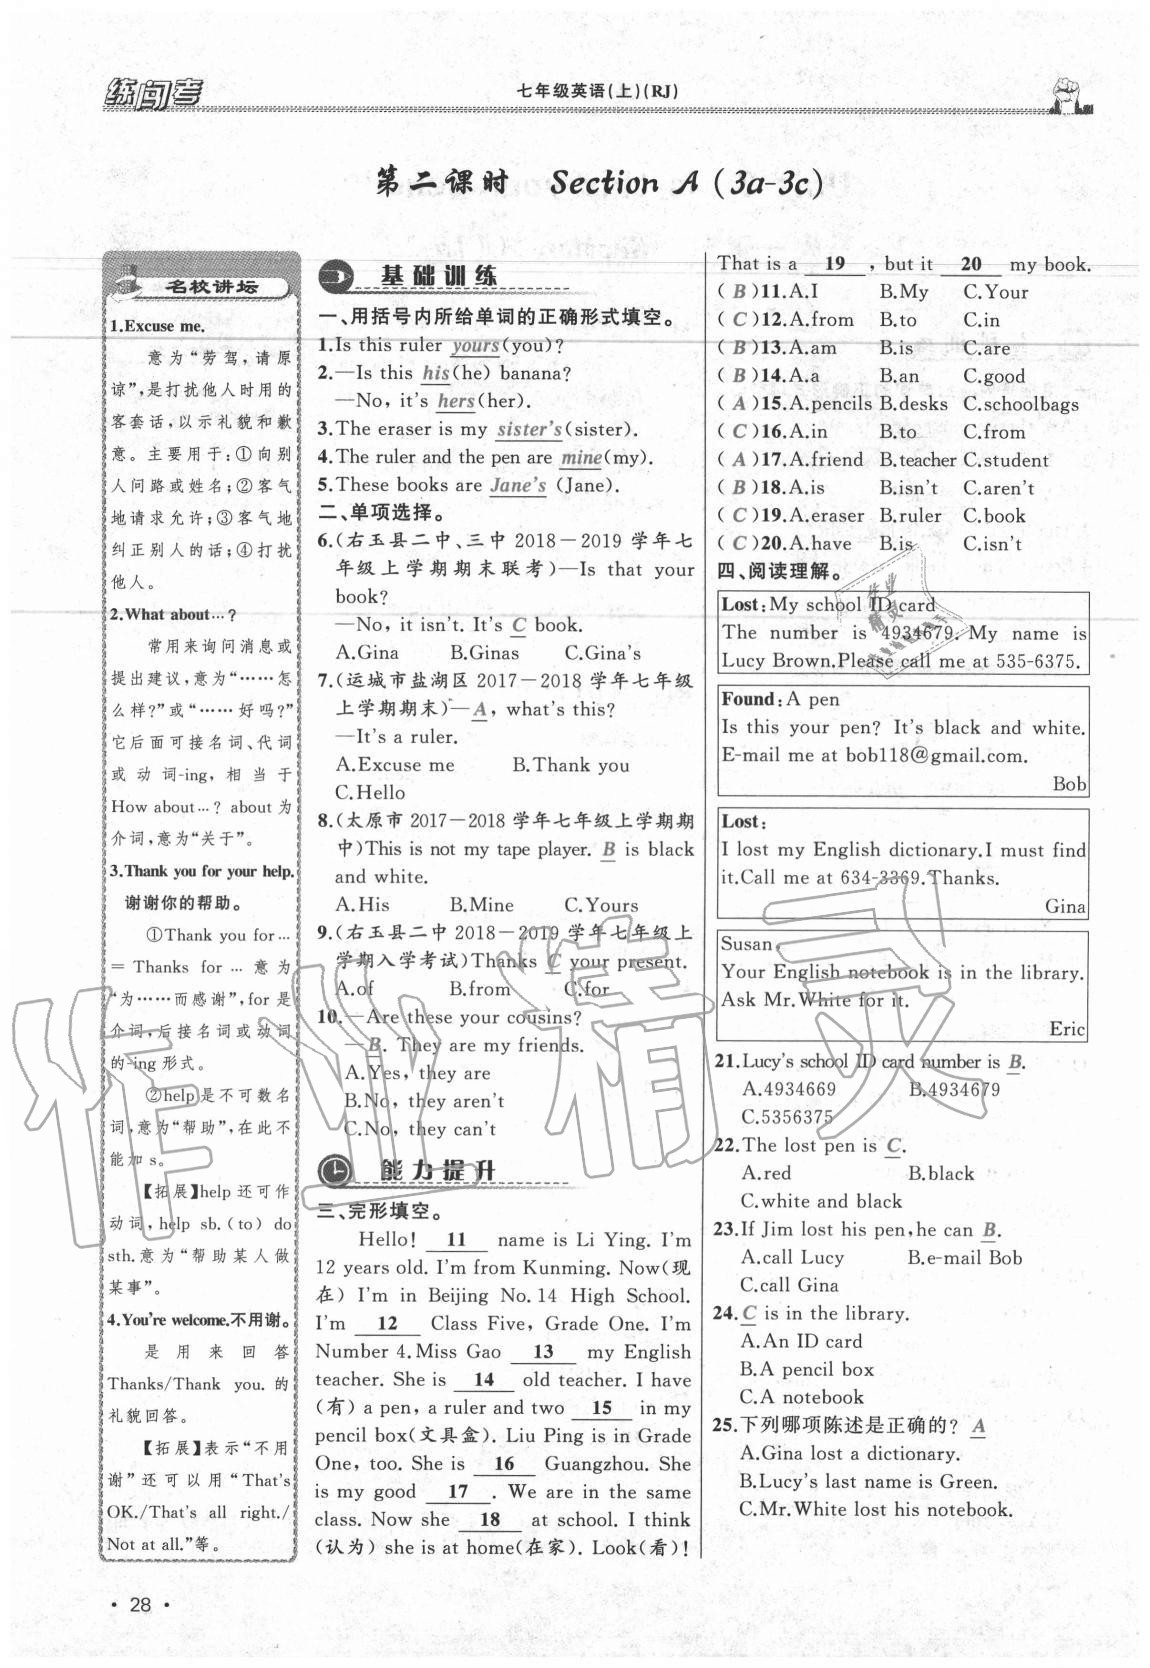 练闯考
七年级英语(上)(RJ)
第二课时 Section A (3a-3c)
名校讲坛
1.Excuse me.
意为“劳驾,请原
谅”,是打扰他人时用的
客套话,以示礼貌和歉
意。主要用于:①向别
人问路或姓名;②客气
地请求允许;③客气地
纠正别人的话;④打扰
他人。
2.What about…?
常用来询问消息或
提出建议,意为“……怎
么样?”或“……好吗?”
它后面可接名词、代词
或动词-ing,相当于
How about…? about为
介词,意为“关于”。
3.Thank you for your help.
谢谢你的帮助。
①Thank you for…
=Thanks for… 意为
“为……而感谢”,for是
介词,后接名词或动词
的-ing形式。
②help是不可数名
词,意为“帮助”,在此不
能加s。
【拓展】help还可作
动词,help sb.(to) do
sth.意为“帮助某人做
某事”。
4.You're welcome.不用谢。
是用来回答
Thanks/Thank you.的
礼貌回答。
【拓展】表示“不用
谢”还可以用“That's
OK./That's all right./
Not at all.”等。
基础训练
一、用括号内所给单词的正确形式填空。
1.Is this ruler yours(you)?
2.—Is this his(he) banana?
—No, it's hers(her).
3.The eraser is my sister's(sister).
4.The ruler and the pen are mine(my).
5.These books are Jane's (Jane).
二、单项选择。
6.(右玉县二中、三中2018-2019学年七
年级上学期期末联考)—Is that your
book?
—No, it isn't. It's C book.
A.Gina B.Ginas C.Gina's
7.(运城市盐湖区2017-2018学年七年级
上学期期末)—A, what's this?
—It's a ruler.
A.Excuse me B.Thank you
C.Hello
8.(太原市2017-2018学年七年级上学期期
中)This is not my tape player. B is black
and white.
A.His B.Mine C.Yours
9.(右玉县二中2018-2019学年七年级上
学期入学考试)Thanks C your present.
A.of B.from C.for
10.—Are these your cousins?
—B. They are my friends.
A.Yes, they are
B.No, they aren't
C.No, they can't
能力提升
三、完形填空。
Hello! 11 name is Li Ying. I'm
12 years old. I'm from Kunming. Now(现
在) I'm in Beijing No. 14 High School.
I'm 12 Class Five, Grade One. I'm
Number 4. Miss Gao 13 my English
teacher. She is 14 old teacher. I have
(有) a pen, a ruler and two 15 in my
pencil box(文具盒). Liu Ping is in Grade
One, too. She is 16 Guangzhou. She
is my good 17. We are in the same
class. Now she 18 at school. I think
(认为) she is at home(在家). Look(看)!
That is a 19, but it 20 my book.
(B)11.A.I B.My C.Your
(C)12.A.from B.to C.in
(B)13.A.am B.is C.are
(B)14.A.a B.an C.good
(A)15.A.pencils B.desks C.schoolbags
(C)16.A.in B.to C.from
(A)17.A.friend B.teacher C.student
(B)18.A.is B.isn't C.aren't
(C)19.A.eraser B.ruler C.book
(C)20.A.have B.is C.isn't
四、阅读理解。
Lost:My school ID card
The number is 4934679. My name is
Lucy Brown.Please call me at 535-6375.
Found:A pen
Is this your pen? It's black and white.
E-mail me at bob118@gmail.com.
Bob
Lost:
I lost my English dictionary.I must find
it.Call me at 634-3369.Thanks.
Gina
Susan,
Your English notebook is in the library.
Ask Mr.White for it.
Eric
21.Lucy's school ID card number is B.
A.4934669 B.4934679
C.5356375
22.The lost pen is C.
A.red B.black
C.white and black
23.If Jim lost his pen,he can B.
A.call Lucy B.e-mail Bob
C.call Gina
24.C is in the library.
A.An ID card
B.A pencil box
C.A notebook
25.下列哪项陈述是正确的? A
A.Gina lost a dictionary.
B.Lucy's last name is Green.
C.Mr.White lost his notebook.
作业精灵
作业精灵
· 28 ·